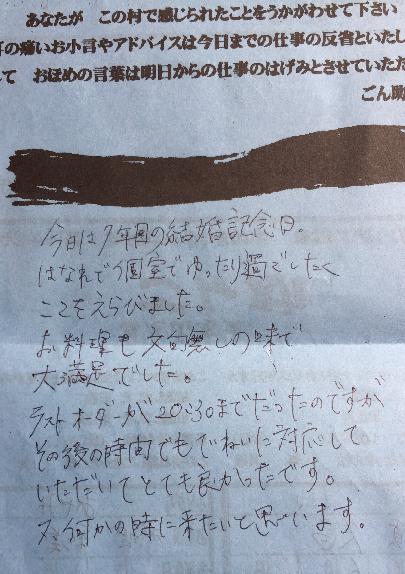 あなたが この村で感じられたことをうかがわせて下さい
の痛いお小言やアドバイスは今日までの仕事の反省といたし
て おほめの言葉は明日からの仕事のはげみとさせていただ
ごん助
今日は7年目の結婚記念日。
はなれで個室でゆったり過ごしたく
ここをえらびました。
お料理も文句無しの味で
大満足でした。
ラストオーダーが20:30までだったのですが
その後の時間でもていねいに対応して
いただいてとても良かったです。
又、何かの時に来たいと思います。